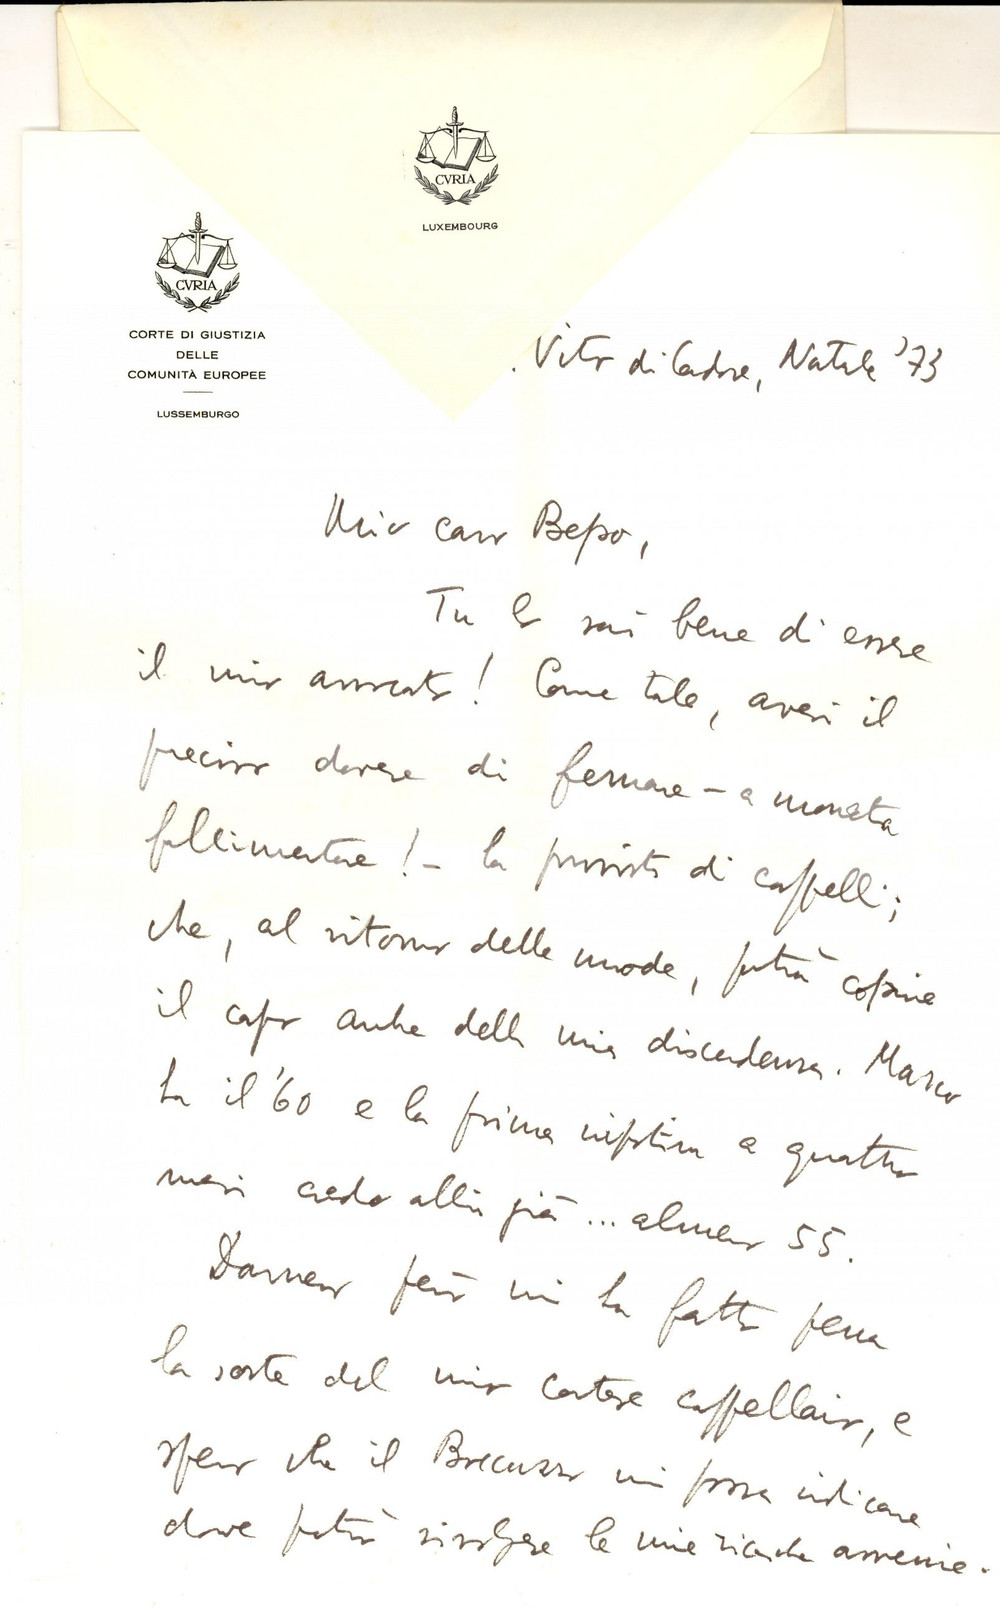 CVRIA
LUXEMBOURG
CVRIA
CORTE DI GIUSTIZIA
DELLE
COMUNITÀ EUROPEE
LUSSEMBURGO
. Vito di Cadore, Natale '73
Mio caro Bepo,
Tu lo sai bene di essere
il mio avvocato! Come tale, avevi il
preciso dovere di fermare – a moneta
fallimentare! – la provvista di cappelli;
che, al ritorno delle mode, potrà coprire
il capo anche della mia discendenza. Marco
ha il '60 e la prima nipotina a quattro
mesi credo abbia già ... almeno 55.
Davvero però mi ha fatto pena
la sorte del mio cortese cappellaio, e
spero che il Brecuzzo mi possa indicare
dove potrò rivolgere le mie ricerche avvenire.